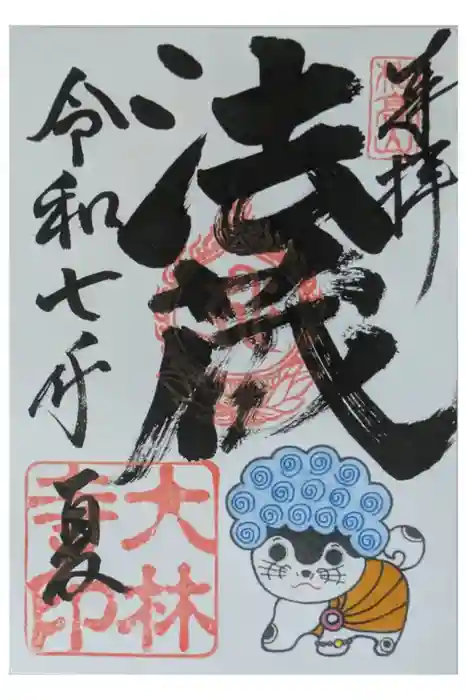 奉拝
法
令和七年
夏
大林
寺印